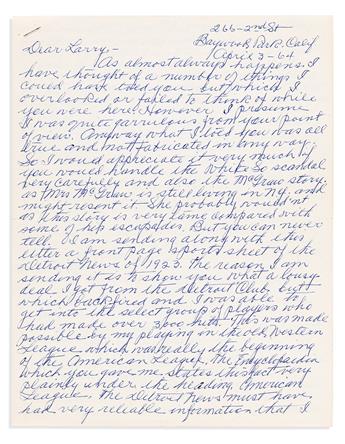 266-2nd St
Baywood Park. Calif
April 3-64
Dear Larry,-
As almost always happens. I
have thought of a number of things I
could have told you but which I
overlooked or failed to think of while
you were here. However I presume
I was quite garrulous from your point
of view. Anyway what I told you was all
true and not fabricated in any way.
So I would appreciate it very much if
you would handle the White Sox scandal
very carefully and also the McGraw story
as Mrs McGraw is still living in N.Y. and
might resent it She probably wouldn't
as this story is very tame compared with
some of his escapades. But you can never
tell. I am sending along with this
letter a front page sports sheet of the
Detroit News of 1923. The reason I am
sending it is to show you what a lousy
deal I got from the Detroit Club, but
which backfired and I was able to
get into the select group of players who
had made over 3000 hits. This was made
possible by my playing in the old Western
League. which was really the beginning
of the American League. The Encyclopedia
which you gave me states this fact very
plainly under the heading American
League. The Detroit News must have
had very reliable information that I